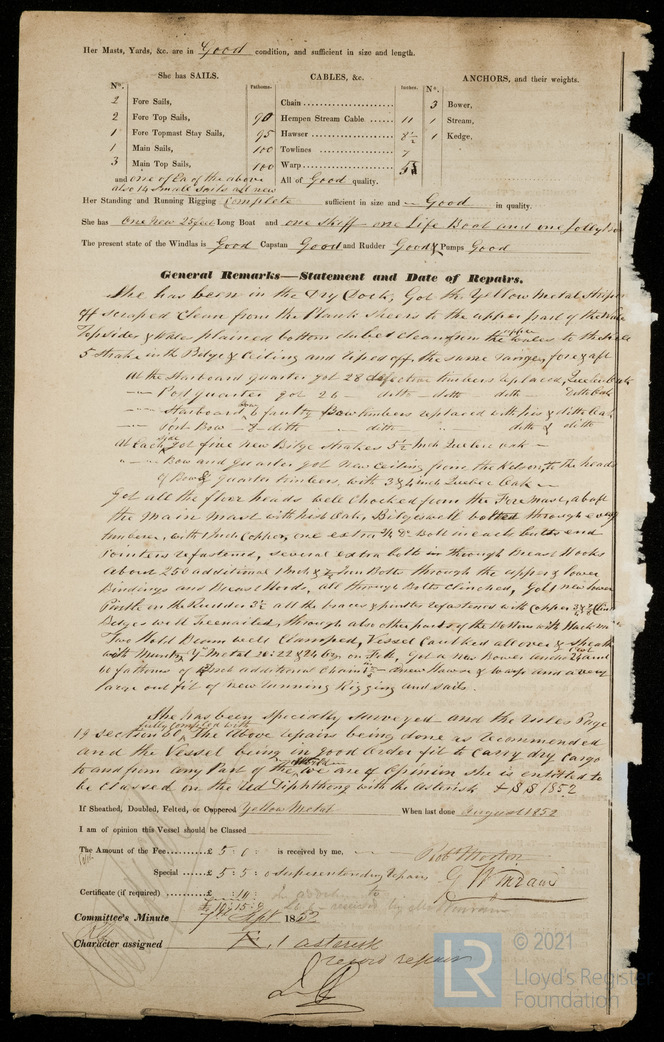 Her Masts, Yards, &c. are in Good condition, and sufficient in size and length.
She has SAILS.
CABLES, &c.
ANCHORS, and their weights.
No.
Fathoms.
Inches.
No.
2 Fore Sails,
Chain
3 Bower,
2 Fore Top Sails,
90 Hempen Stream Cable 11
1 Stream,
1 Fore Topmast Stay Sails,
95 Hawser 8½
1 Kedge.
1 Main Sails,
100 Towlines 7
3 Main Top Sails,
100 Warp
and one of Ea of the above
also 14 Small Sails all new
All of Good quality.
Her Standing and Running Rigging Complete sufficient in size and Good in quality.
She has One new 25 feet Long Boat and one Skiff one Life Boat and one Jolly
The present state of the Windlas is Good Capstan Good and Rudder Good & Pumps Good
General Remarks—Statement and Date of Repairs.
She has been in the Dry Dock, Got the Yellow Metal Stript
off scraped Clean from the Plank Sheers to the upper part of the
Topsides & Wales plained bottom dubed Clean from the wales to the
5 Strake in the Bilge & Ceiling and the same fore & aft
At the Starboard Quarter got 28 defective timbers replaced, Quebec Oak
Port quarter got 26 ditto ditto ditto Ditto Oak
Starboard 6 faulty Bow timbers replaced with & ditto Oak
Port Bow 8 ditto ditto ditto & ditto
At Each side got five new Bilge Strakes 5½ Inch Quebec Oak
Bow and Quarter got New Ceiling from the Kelson to the heads
of Bow & quarter timbers, with 3 & 4 inch Quebec Oak
Got all the floor heads well Chocked from the Fore mast, abaft
the Main Mast with Oak, Bilges well bolted through every
timber, with Inch Copper, one extra Bolt in each butts end
Pointers refastened, several extra bolts in through Breast Hooks
about 250 additional Inch & Bolts through the upper & lower
Bindings and Breast Hooks, all through Bolts Clinched, Got 1 new lower
Pintle on the Rudder 3½ all the braces & pintles refastened with Copper
Bilges well Treenailed, through also other parts of the bottom with
Two Hold Beams well Clamped, Vessel Caulked all over & Sheathed
with Muntz Y Metal 20: 22 & 24 on Felt, Got a new Bower
60 fathoms of Inch additional Chain a new Hawser & warp and a very
large out fit of new Running Rigging and sails.
She has been specially surveyed and the rules Page
19 section 60, fully complied with The above repairs being done as recommended
and the Vessel being in good order fit to Carry dry Cargo
to and from any Part of the World we are of Opinion she is entitled to
be classed on the Red Dipthong with the Asterisk 1852
If Sheathed, Doubled, Felted, or Coppered Yellow Metal When last done August 1852
I am of opinion this Vessel should be Classed
The Amount of the Fee £ 5 : 0 : is received by me,
Special £ 5 : 5 : 0 superintending repairs
Certificate (if required) £
£ 10 : 15 : 0
Committee's Minute 7th Sept 1852
Character assigned Æ. 1 asterisk
record repair
© 2021
Lloyd's Register
Foundation
LR